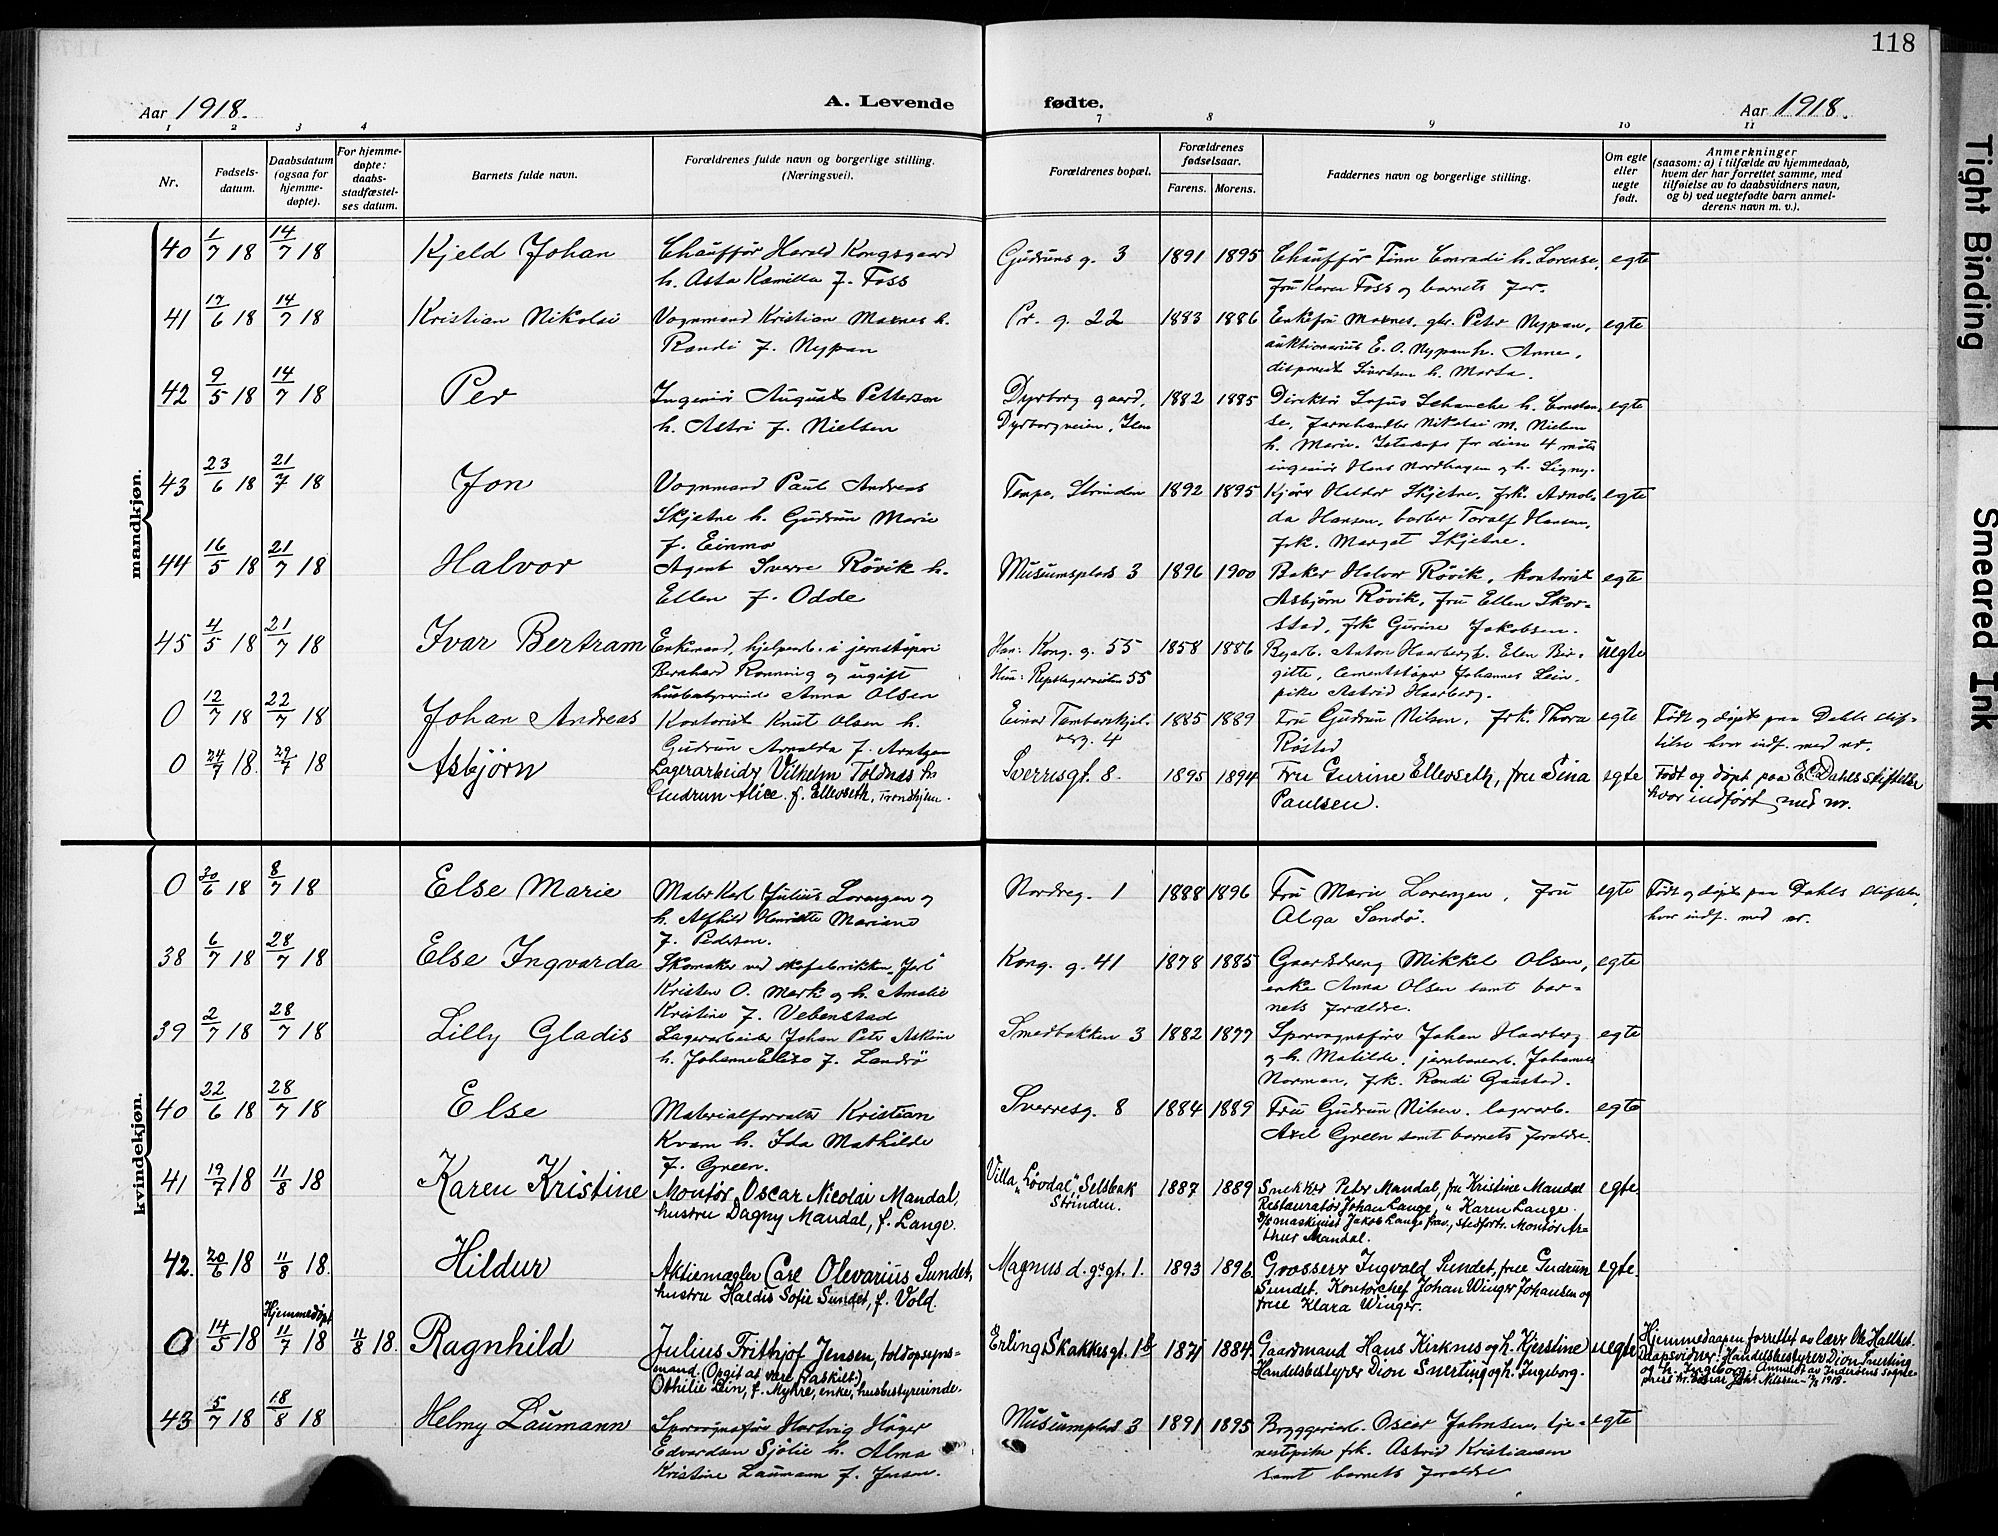 118
Aar 1918.
A. Levende fødte.
Aar 1918.
1 2 3 4 7 8 9 10 11
Nr.
Fødsels-
datum.
Daabsdatum
(ogsaa for
hjemme-
døpte).
For hjemme-
døpte:
daabs-
stadfæstel-
ses datum.
Barnets fulde navn.
Forældrenes fulde navn og borgerlige stilling.
(Næringsvei).
Forældrenes bopæl.
Forældrenes
fødselsaar.
Farens. Morens.
Faddernes navn og borgerlige stilling.
Om egte
eller
uegte
født.
Anmerkninger
(saasom: a) i tilfælde av hjemmedaab,
hvem der har forrettet samme, med
tilføielse av to daabsvidners navn,
og b) ved uegtefødte barn anmel-
derens navn m. v.).
mandkjøn.
40 1/7 18 14/7 18 Kjeld Johan Chauffør Harald Kongsgaard Gudruns g. 3 1891 1895 Chauffør Finn Conradi h. Lorense, egte
h. Asta Kamilla f. Foss fru Karen Foss og barnets far.
41 17/6 18 14/7 18 Kristian Nikolai Vognmand Kristian Moxnes h. Pr. g. 22 1883 1886 Enkefru Moxnes, gbr. Peter Nypan, egte
Randi f. Nypan auktionarius E. O. Nypan h. Anne,
disponent Sivertsen h. Marta.
42 9/5 18 14/7 18 Per Ingeniør August Petterson Dyrborg gaard, 1882 1885 Direktør Sofus Schanche h. Constan- egte
h. Astri f. Nielsen Dyrborgveien, Ilen se, farvehandler Nikolai M. Nielsen
h. Marie. Istedenfor for disse 4 møtte
ingeniør Hans Nordhagen og h. Signy.
43 23/6 18 21/7 18 Jon Vognmand Paul Andreas Tempe, Strinden 1892 1895 Kjører Haldor Skjetne, frk. Arnol- egte
Skjetne h. Gudrun Marie da Hansen, barber Toralf Hansen,
f. Einmo frk. Margot Skjetne.
44 16/5 18 21/7 18 Halvor Agent Sverre Røvik h. Museumsplads 3 1896 1900 Baker Halvor Røvik, kontorist egte
Ellen f. Odde Asbjørn Røvik, fru Ellen Skor-
stad, frk Gurine Jakobsen.
45 4/5 18 21/7 18 Ivar Bertram Enkemand, hjelpearb. i jernstøperi Han: Kong. g. 55 1858 1886 Byarb. Anton Haarberg h. Elen Bir- uegte
Bernhard Rønning og ugift Hun: Repslagerveiten 55 gitte, cementstøper Johannes Lein,
husbestyrerinde Anna Olsen pike Astrid Haarberg.
0 12/7 18 22/7 18 Johan Andreas Kontorist Knut Olsen h. Einar Tamberskjel- 1885 1889 Fru Gudrun Nilsen, frk. Thora egte Født og døpt paa Dahls stif-
Gudrun Arnalda f. Arntzen verg. 4 Røstad telse hvor indf. med nr.
0 24/7 18. 29/7 18 Asbjørn Lagerarbeider Vilhelm Toldnæs hs Sverresgt. 8. 1895 1894 Fru Gurine Ellevseth, fru Sina egte Født og døpt paa E.C. Dahls stiftelse
Gudrun Alice f. Ellevseth, Trondhjem. Paulsen. hvor indført med nr.
kvindekjøn.
0 30/6 18 8/7 18 Else Marie Maler Karl Julius Lorenzen og Nordreg. 1 1888 1896 Fru Marie Lorenzen, fru egte Født og døpt paa Dahls stiftelse,
h. Alfhild Henriette Mariane Olga Sandø. hvor indf. med nr.
f. Pedersen.
38 6/7 18 28/7 18 Else Ingvarda Skomaker ved skofabrikken "Jarl" Kong. g. 41 1878 1885 Gaardsdreng Mikkel Olsen, egte
Kristen O. Mork og h. Amalie enke Anna Olsen samt bar-
Kristine f. Vebenstad nets forældre.
39 2/7 18 28/7 18 Lilly Gladis Lagerarbeider Johan Peter Askim Smedbakken 3 1882 1877 Sporvognsfører Johan Haarberg egte
h. Johanne Elise f. Landrø og h. Matilde, jernbanearb. Johannes
Norman, frk. Randi Gaustad.
40 22/6 18 28/7 18 Else Materialforvalter Kristian Sverresg. 8 1884 1889 Fru Gudrun Nilsen, lagerarb. egte
Kvam h. Ida Mathilde Axel Green samt barnets forældre.
f. Green.
41 19/7 18 11/8 18 Karen Kristine Montør Oscar Nicolai Mandal, Villa "Løvdal", Selsbak 1887 1889 Snekker Peter Mandal, fru Kristine Mandal egte.
hustru Dagny Mandal, f. Lange. Strinden. Restauratør Johan Lange, " Karen Lange.
D/S maskinist Jakob Lange frav., stedfortr. Montør Ar-
thur Mandal.
42. 20/6 18 11/8 18. Hildur Aktiemægler Carl Olevarius Sundet, Magnus d. gs gt. 1. 1893 1896. Grosserer Ingvald Sundet, frue Gudrun egte.
hustru Haldis Sofie Sundet, f. Vold. Sundet, Kontorchef Johan Winger Johansen og
frue Klara Winger.
0 14/5 18 Hjemmedøpt 11/7 18 11/8 18. Ragnhild Julius Frithjof Jensen, toldopsyns- Erling Skakkes gt. 1b 1871 1884. Gaardmand Hans Kirknes og h. Kjerstine uegte Hjemmedaapen forrettet av lærer Ole Hallset.
mand. (Opgit at være fraskilt.) Handelsbestyrer Dion Snerting og h. Ingeborg. Daapsvidner: Handelsbestyrer Dion Snerting
Othilie Lein, f. Myhre, enke, husbestyrerinde. og h. Ingeborg. Anmeldt av Inderøens sogne-
prest
43 5/7 18 18/8 18 Helmy Laumann Sporvognsfører Hartvig Hager Museumsplads 3 1891 1895 Bryggeriarb. Oscar Johnsen, tje- egte
Edvardsen Sjølie h. Alma nestepike frk. Astrid Kristiansen
Kristine Laumann f. Jensen. samt barnets forældre
Tight Binding
Smeared Ink